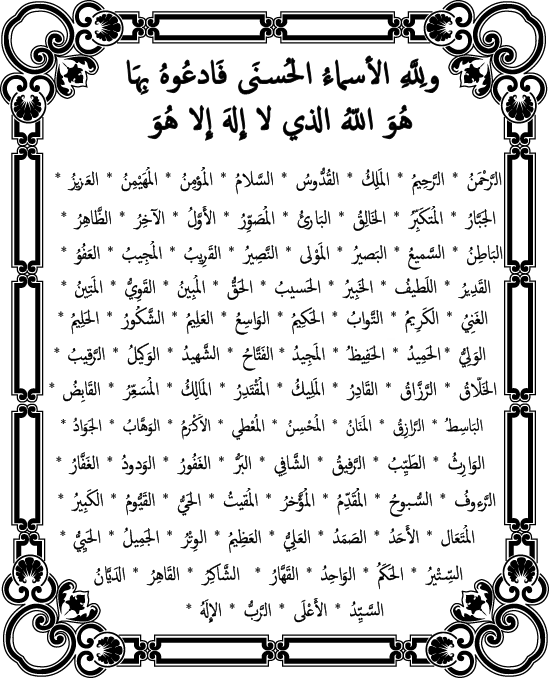 وللَّهِ الأسماءُ الحُسنَى فَادعُوهُ بِهَا
هُوَ اللّهُ الذي لا إلهَ إلا هُوَ
الرَّحْمَنُ * الرَّحِيمُ * المَلِكُ * القُدُّوسُ * السَّلامُ * المُؤمِنُ * المُهَيْمِنُ * العَزِيزُ *
الجَبَّارُ * المُتَكَبِّرُ * الخَالِقُ * البَارِئُ * المُصَوِّرُ * الأَوَّلُ * الآخِرُ * الظَّاهِرُ *
البَاطِنُ * السَّمِيعُ * البَصيرُ * المَوْلى * النَّصِيرُ * القَرِيبُ * المُجِيبُ * العَفُوُّ *
القَدِيرُ * اللَطِيفُ * الخَبِيرُ * الحَسيبُ * الحَقُّ * المُبِينُ * القَوِيُّ * المَتِينُ *
الغَنِيُّ * الكَرِيمُ * التَّوابُ * الحَكِيمُ * الوَاسِعُ * العَلِيمُ * الشَّكُورُ * الحَلِيمُ *
الوَلِيُّ * الحَمِيدُ * الحَفِيظُ * المَجِيدُ * الفَتَّاحُ * الشَّهيدُ * الوَكِيلُ * الرَّقِيبُ *
الخَلّاقُ * الرَّزَّاقُ * القَادِرُ * المَلِيكُ * المُقْتَدِرُ * المَالِكُ * المُسَعِّرُ * القَابِضُ *
البَاسِطُ * الرَّازِقُ * المَنَانُ * المُحْسِنُ * المُعْطي * الاَكْرَمُ * الوَهَّابُ * الجَوَادُ *
الوَارِثُ * الطَّيِّبُ * الرَّفِيقُ * الشَّافِي * البَرُّ * الغَفُورُ * الوَدودُ * الغَفَّارُ *
الرَّءوفُ * السُّبوحُ * المُقَدِّمُ * المُؤَخرُ * المُقيتُ * الحَيُّ * القَيُّومُ * الكَبِيرُ *
المُتَعَال * الأَحَدُ * الصَمَدُ * العَلِيُّ * العَظِيمُ * الوِترُ * الجَمِيلُ * الحَيِيُّ *
السِّتيْرُ * الحَكَمُ * الوَاحِدُ * القَهَّارُ * الشَّاكِرُ * القَاهِرُ * الدَيَّانُ
السَّيِّدُ * الأَعْلَى * الرَّبُّ * الإلَهُ *